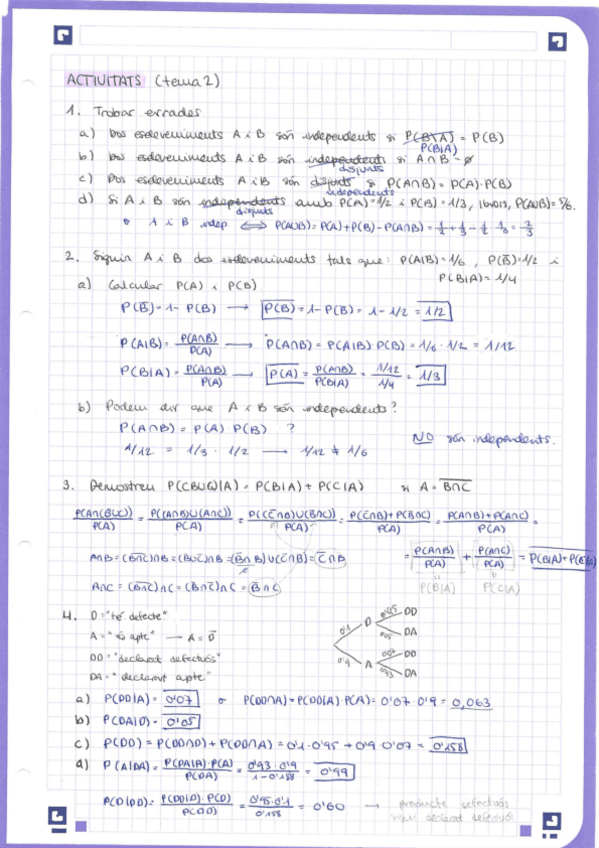 ACTIVITATS (tema 2)
1. Trobar errades
a) Dos esdeveniments A i B són independents si P(B\A) = P(B)
P(B|A)
b) Dos esdeveniments A i B són independents si A∩B = ∅
disjunts
c) Dos esdeveniments A i B són disjunts si P(A∩B) = P(A)·P(B)
independents
d) Si A i B són independents amb P(A)=1/2 i P(B)=1/3, llavors, P(A∪B)=5/6.
disjunts
o A i B indep ⟺ P(A∪B) = P(A)+P(B)-P(A∩B) = 1/2 + 1/3 - 1/2 · 1/3 = 2/3
2. Siguin A i B dos esdeveniments tals que: P(A|B)=1/6, P(B̅)=1/2 i
P(B|A)=1/4
a) Calcular P(A) i P(B)
P(B̅)=1-P(B) → P(B)=1-P(B̅)=1-1/2=1/2
P(A|B)= P(A∩B)/P(A) → P(A∩B)=P(A|B)·P(B)=1/6·1/2=1/12
P(B|A)= P(A∩B)/P(A) → P(A)= P(A∩B)/P(B|A) = 1/12 / 1/4 = 1/3
b) Podem dir que A i B són independents?
P(A∩B) = P(A) P(B) ?
1/12 = 1/3 · 1/2 → 1/12 ≠ 1/6
NO són independents.
3. Demostreu P(C∪B|A) = P(B|A) + P(C|A) si A = B∩C
P(A∩(B∪C))/P(A) = P((A∩B)∪(A∩C))/P(A) = P((C̅∩B)∪(B̅∩C))/P(A) = P(C̅∩B)+P(B̅∩C)/P(A) = P(A∩B)+P(A∩C)/P(A) =
A∩B = (B∩C)∩B = (B̅∪C̅)∩B = (B̅∩B)∪(C̅∩B) = C̅∩B
= P(A∩B)/P(A) + P(A∩C)/P(A) = P(B|A)+P(C|A)
A∩C = (B∩C)∩C = (B̅∩C̅)∩C = B̅∩C
P(B|A) P(C|A)
4. D = "té defecte"
A = "és apte" — A = D̅
DD = "declarat defectuós"
DA = "declarat apte"
0'1 D 0'95 DD
0'05 DA
0'9 A 0'07 DD
0'93 DA
a) P(DD|A) = 0'07 o P(DD∩A) = P(DD|A) P(A) = 0'07·0'9 = 0,063
b) P(DA|D) = 0'05
c) P(DD) = P(DD∩D) + P(DD∩A) = 0'1·0'95 + 0'9·0'07 = 0'158
d) P(A|DA) = P(DA|A)·P(A)/P(DA) = 0'93·0'9/1-0'158 = 0'99
P(D|DD) = P(DD|D)·P(D)/P(DD) = 0'95·0'1/0'158 = 0'60 → producte defectuós
sigui declarat defectuós